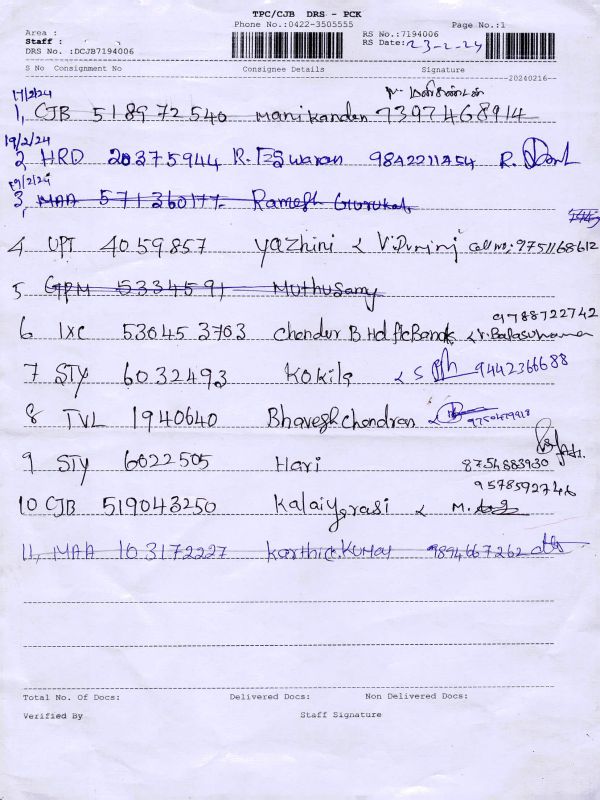 TPC/CJB DRS - PCK
Phone No.:0422-3505555 Page No.:1
Area : RS No.:7194006
Staff : RS Date: 23-2-24
DRS No. :DCJB7194006
S No Consignment No Consignee Details Signature
20240216
17/2/24 மணிகண்டன்
1, CJB 518972540 Manikanden 7397468914
19/2/24
2, HRD 20375944 R. Eswaran 9842211454 R.
3, MAA 571360177 Ramesh Gurukal
4 UPT 4059857 Yazhini & Call no: 9751168612
5 GPM 5334591 Muthusamy
9788722742
6 IXC 530453703 Chandur B Hdfc Bank & V. Balasubramana
7 STY 6032493 Kokila & S 9442366688
8 TVL 1940640 Bhaveshchandran & 9750479918
9 STY 6022505 Hari 8754883930
9578592746
10 CJB 519043250 Kalaiyarasi & M.
11, MAA 103172227 Karthick Kumar 9894667262
Total No. Of Docs: Delivered Docs: Non Delivered Docs:
Verified By Staff Signature